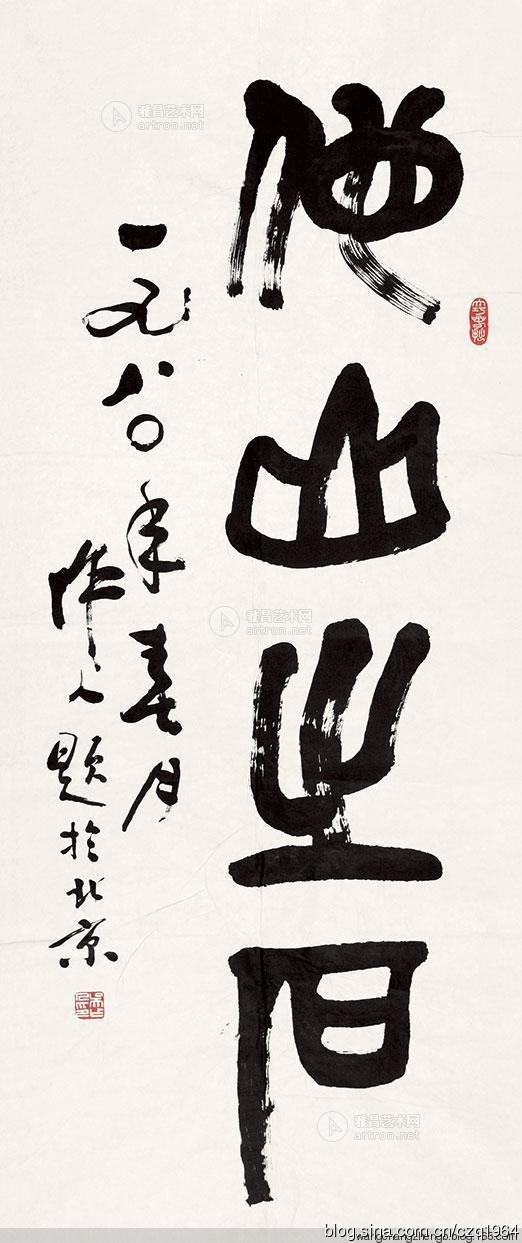 他山之石
一九八〇年春月
作人题於北京
雅昌艺术网
artron.net
雅昌艺术网
artron.net
雅昌艺术网
artron.net
blog.sina.com.cn/czq1964